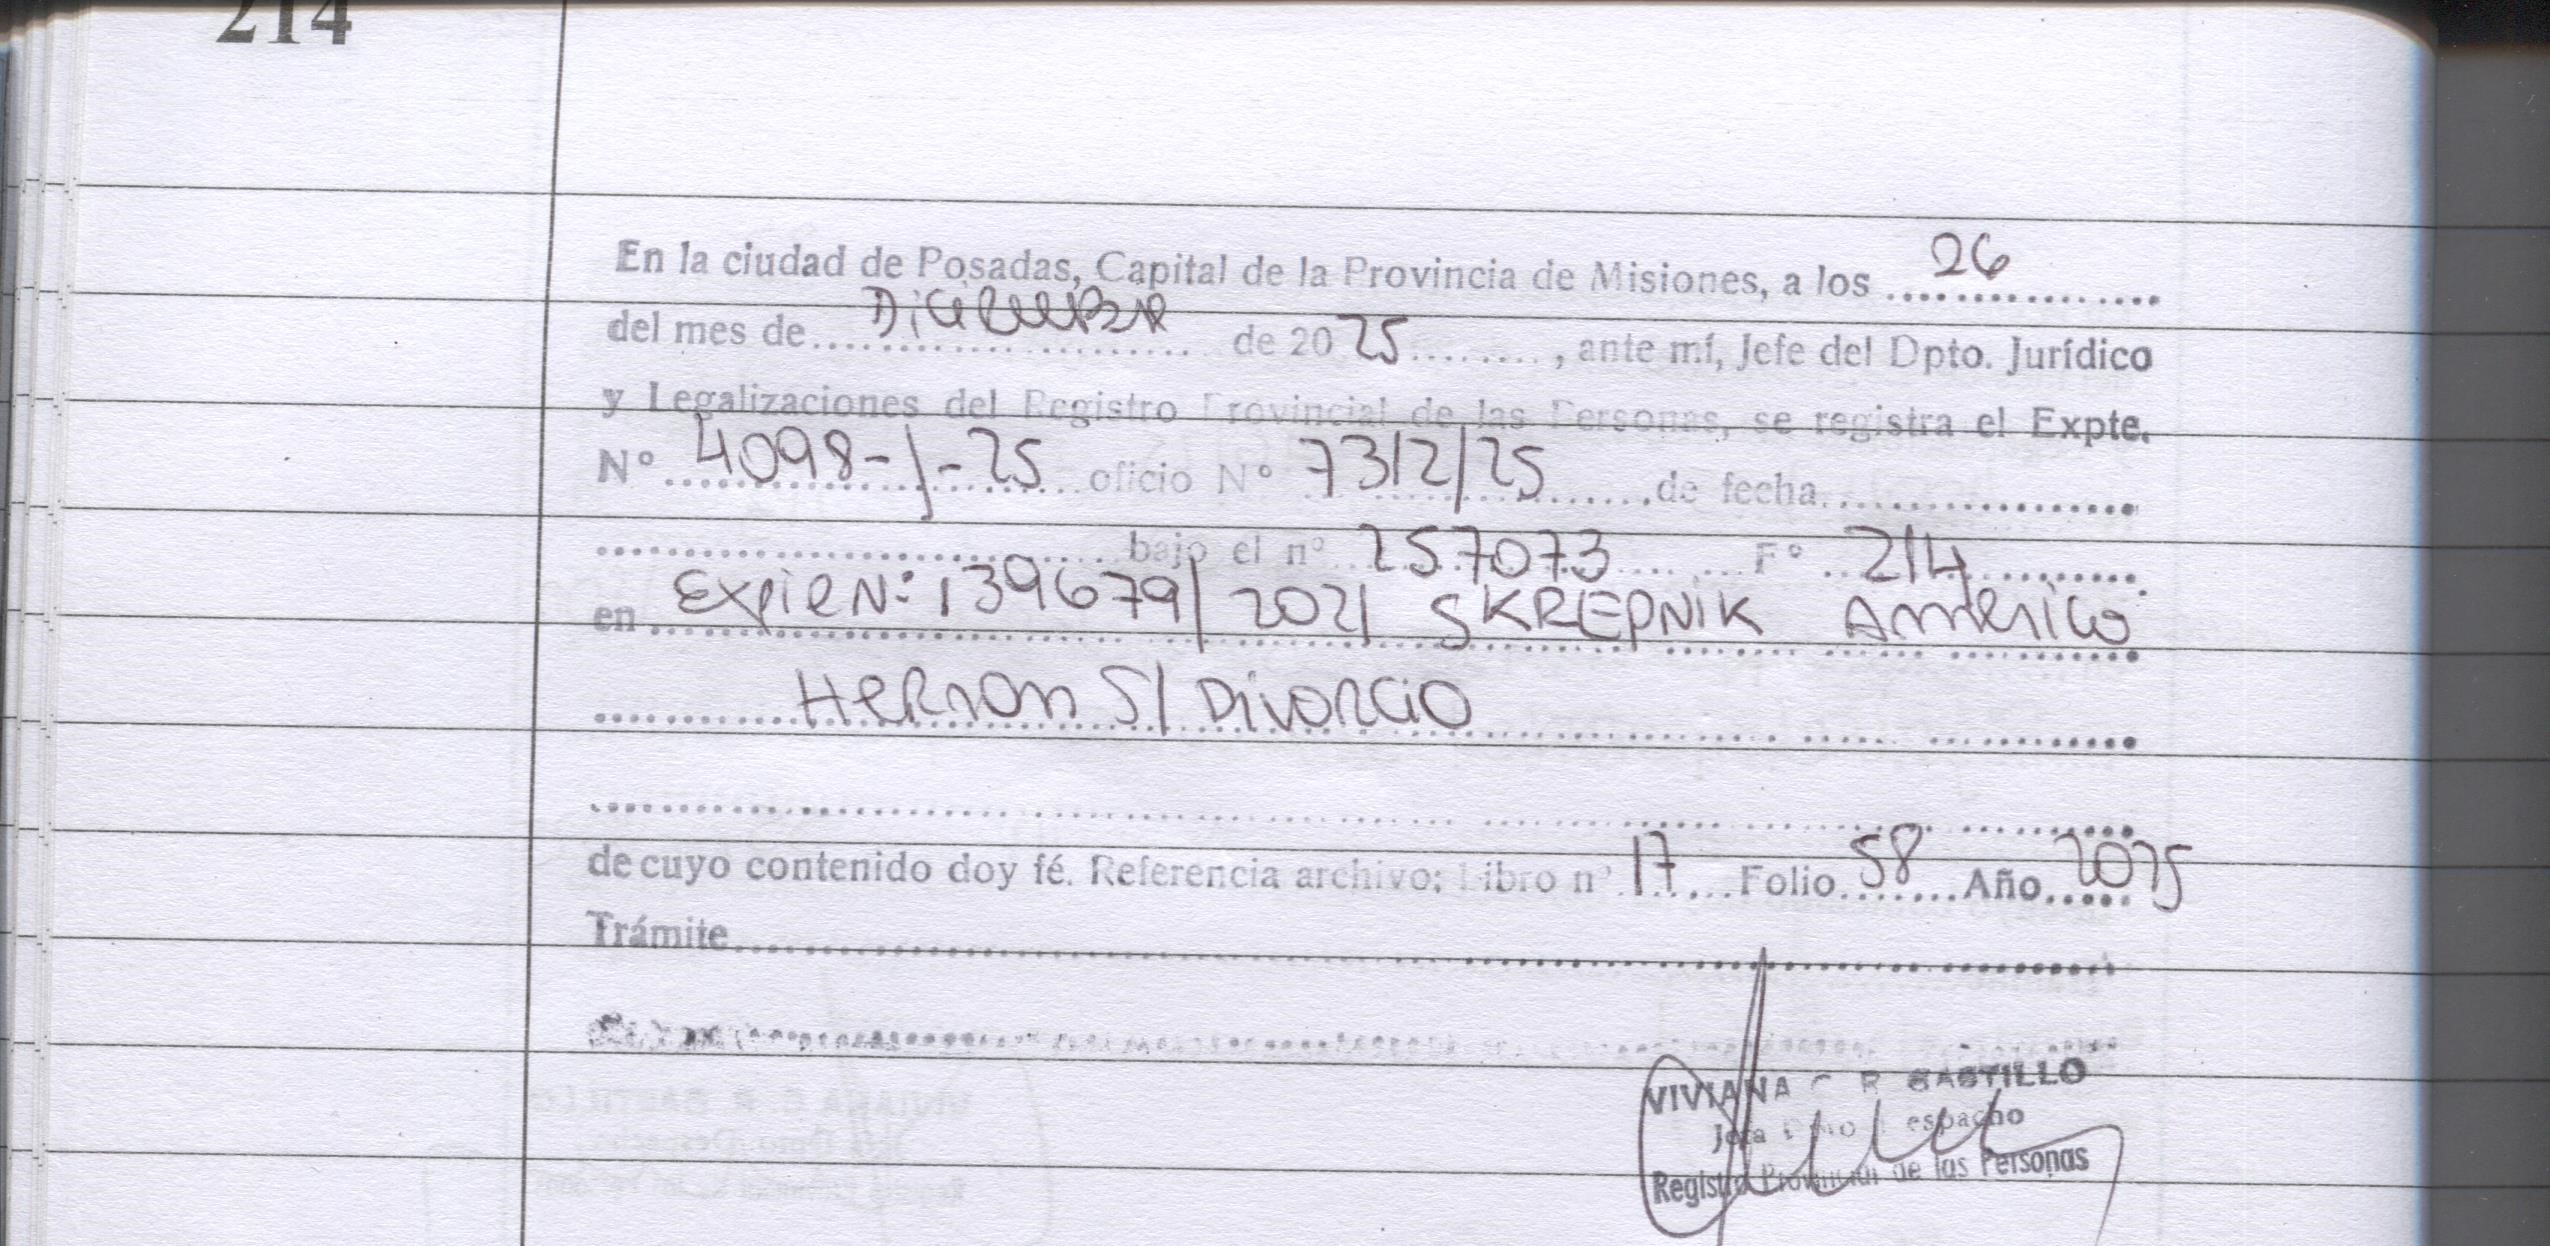 214
En la ciudad de Posadas, Capital de la Provincia de Misiones, a los 26
del mes de Diciembre de 2025, ante mí, Jefe del Dpto. Jurídico
y Legalizaciones del Registro Provincial de las Personas, se registra el Expte.
Nº 4098-J-25 oficio Nº 7312/25 de fecha
bajo el nº 257073 Fº 214
en Expien: 139679/2021 SKREPNIK Américo
Hernan S/ Divorcio
de cuyo contenido doy fé. Referencia archivo: Libro nº 17 Folio 58 Año 2025
Trámite
VIVIANA C R CASTILLO
Jefa Dpto Despacho
Registro Provincial de las Personas